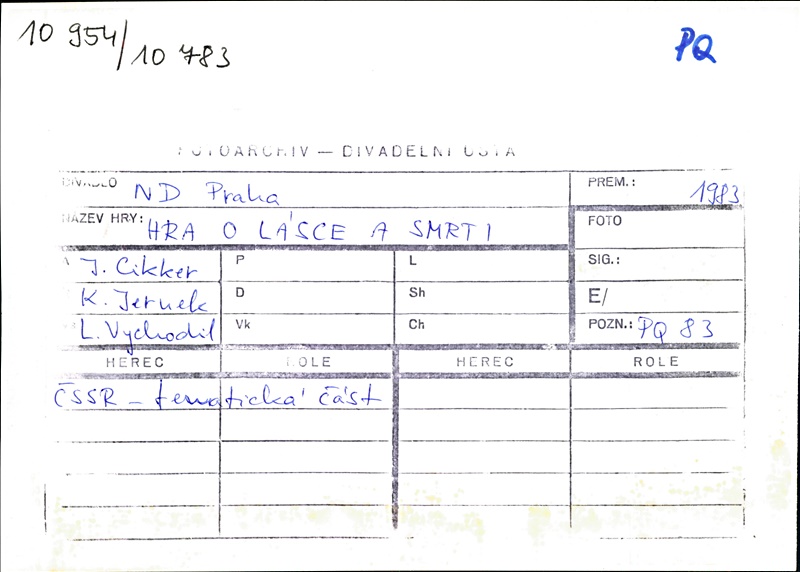 10 954/10 783
PQ
FOTOARCHIV — DIVADELNÍ ÚSTA
DIVADLO ND Praha PREM.: 1983
NÁZEV HRY: HRA O LÁSCE A SMRTI FOTO
J. Cikker P L SIG.:
K. Jernek D Sh E/
L. Vychodil Vk Ch POZN.: PQ 83
HEREC ROLE HEREC ROLE
ČSSR – tematická část